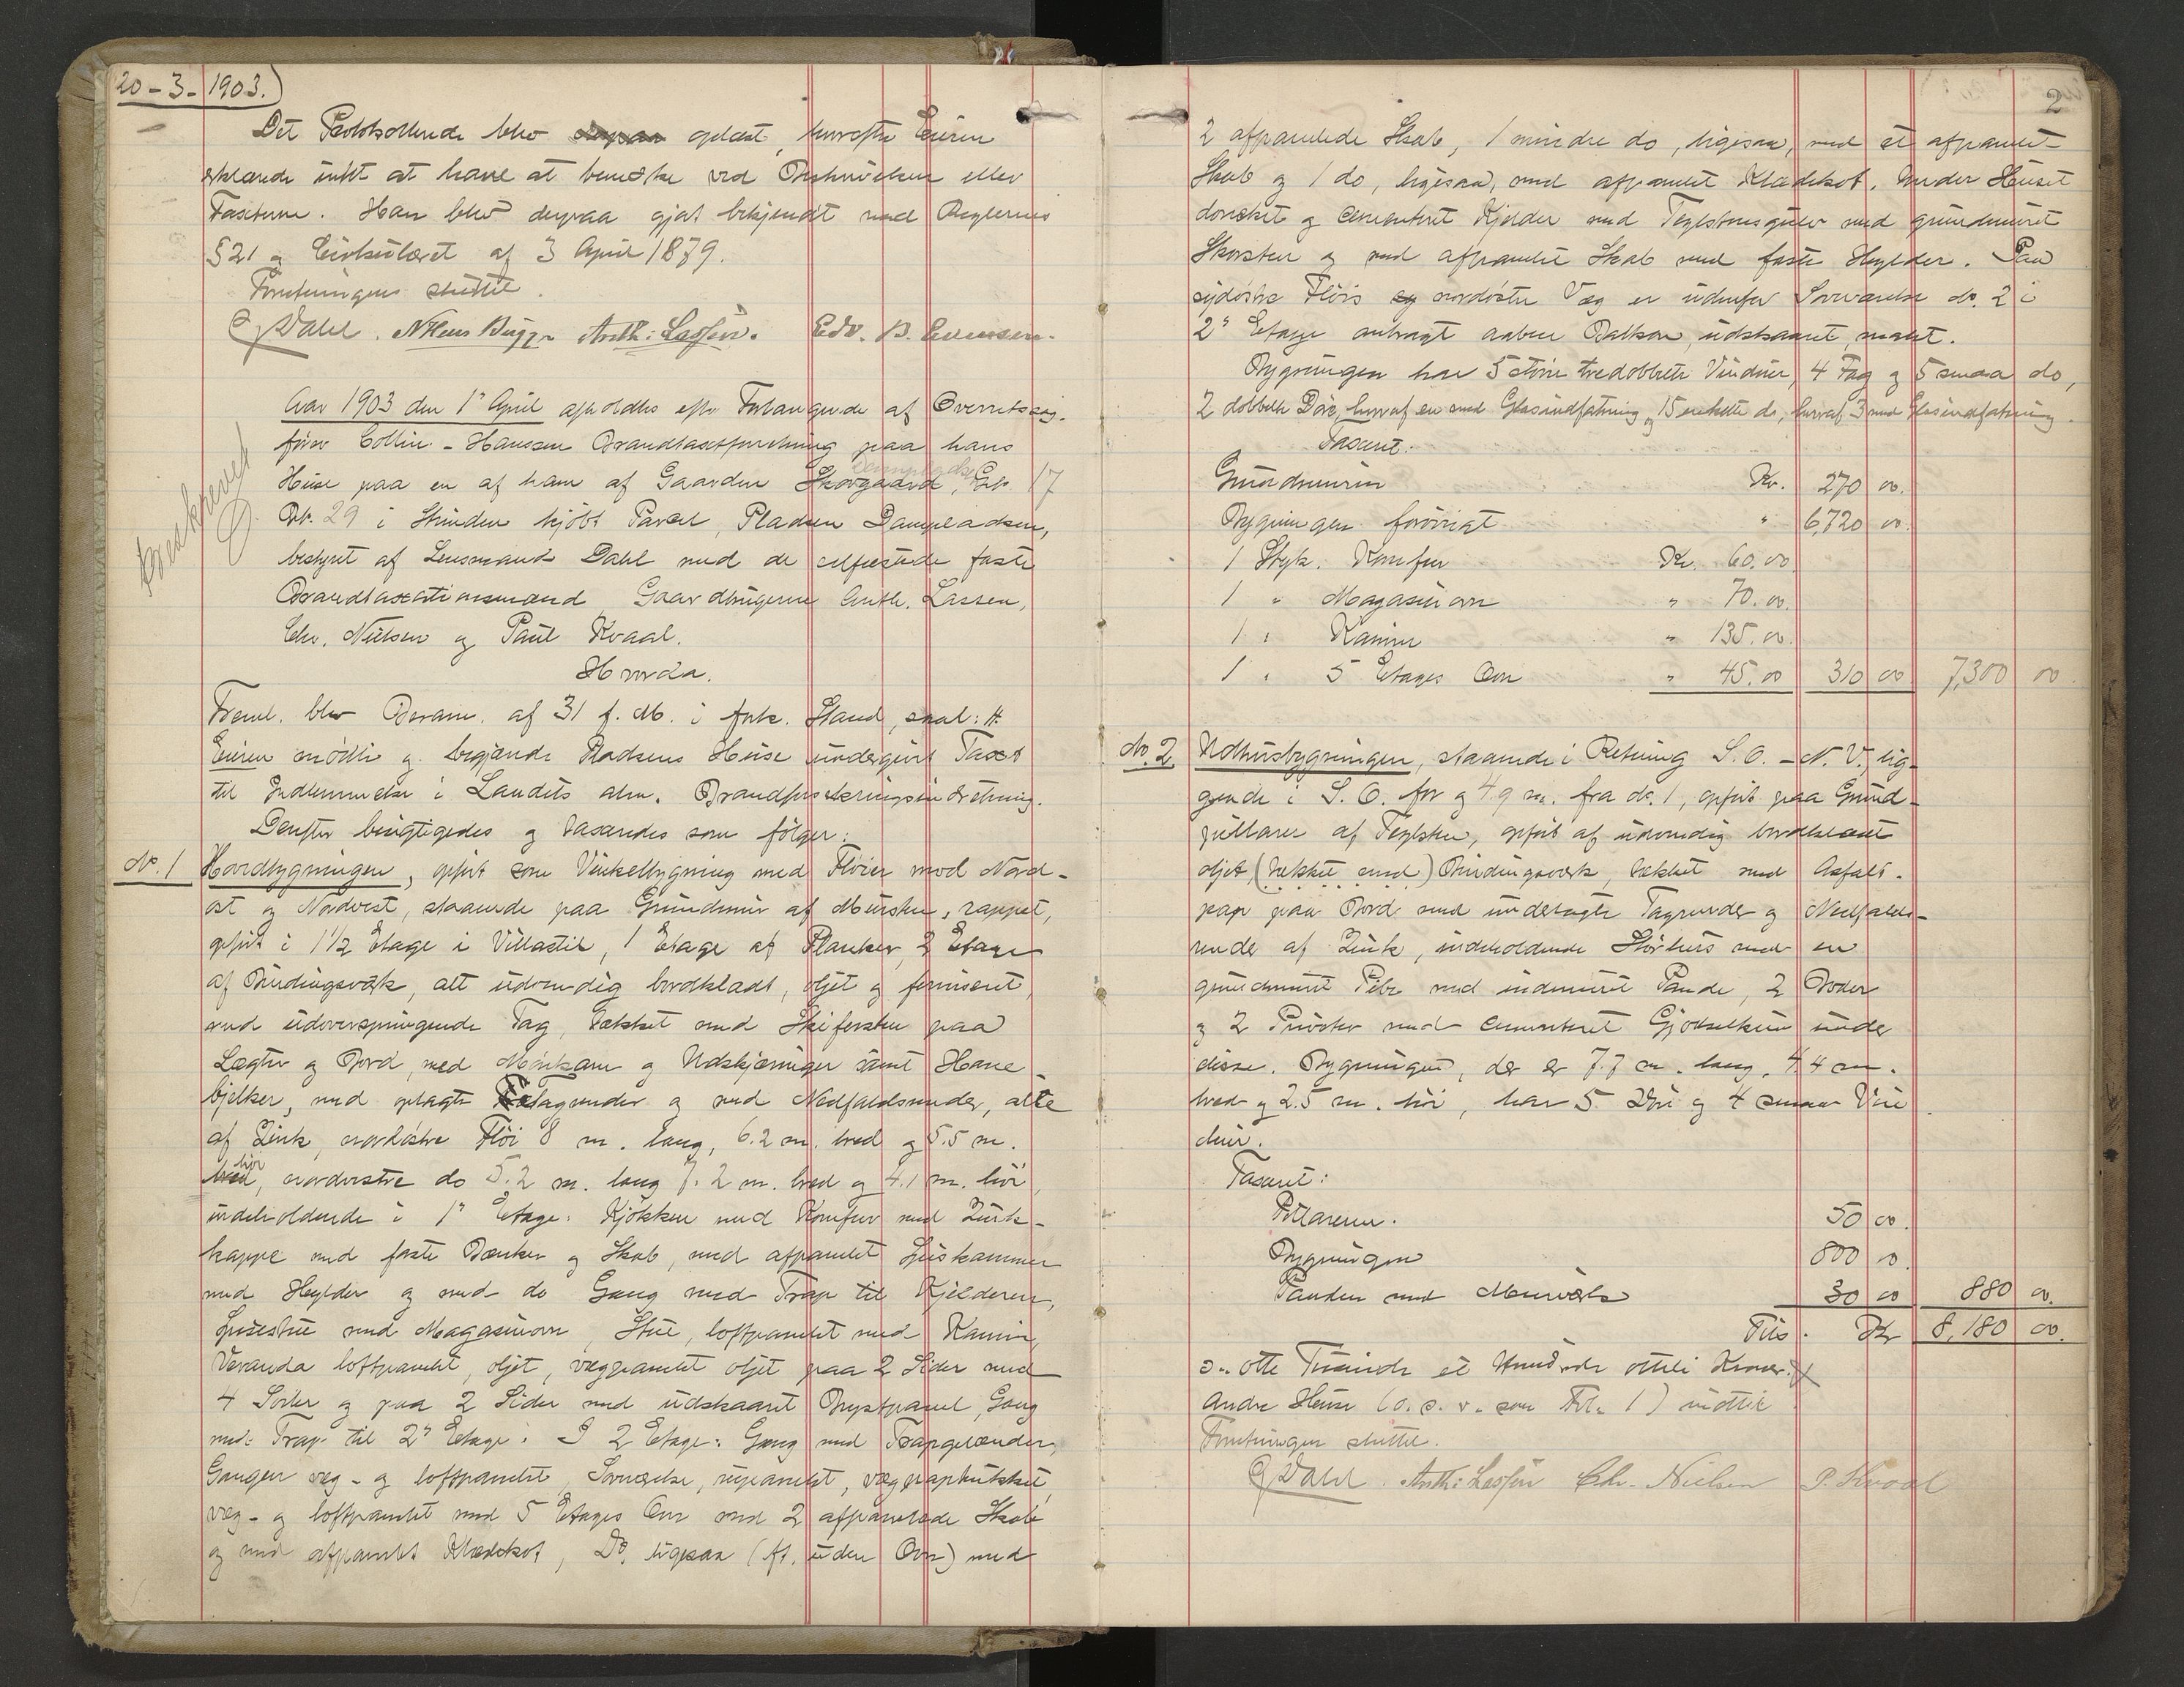 20-3-1903.)
Det Protokollerede blev oplæst, hvorefter Eieren
erklærede intet at have at bemerke ved Beskrivelsen eller
Taxterne. Han blev derpaa gjort bekjendt med Reglernes
§ 21 og Cirkulæret af 3 April 1879.
Forretningen sluttet.
O Dahl. N Hens Bugge Anth: Lassen. Edv. B. Evensen.
Aar 1903 den 1ʺ April afholdtes efter Forlangende af Overretssag-
fører Collin-Hanssen Brandtaxtforretning paa hans
Huse paa en af ham af Gaarden Skovgaard, Gno 17
Br. 29 i Strinden kjøbt Parcel, Pladsen Dampladsen,
bestyret af Lensmand Dahl med de edfæstede faste
Brandtaxationsmænd Gaardbrugerne Anth. Lassen,
Chr. Nielsen og Paul Kvaal.
Hvorda.
Freml. blev Beram. af 31 f. M. i fork. Stand, saal: #.
Eieren mødte og begjærede Pladsens Huse undergivet Taxt
til Indlemmelse i Landets alm. Brandforsikringsindretning.
Derefter besigtigedes og taxeredes som følger:
No. 1 Hovedbygningen, opført som Vinkelbygning med Fløier mod Nord-
ost og Nordvest, staaende paa Grundmur af Mursten, rappet,
opført i 1½ Etage i Villastil, 1 Etage af Planker, 2 Etage
af Bindingsværk, alt udvendig bordklædt, oljet og ferniseret,
med udoverspringende Tag, tækket med Skifersten paa
Lægter og Bord, med Mønekam og Udskjæringer samt Hane-
bjelker, med oplagte Tagrender og med Nedfaldsrender, alle
af Zink, nordøstre Fløi 8 m. lang, 6.2 m. bred og 5.5 m.
høi, nordvestre do 5.2 m. lang 7.2 m. bred og 4.1 m. høi,
indeholdende i 1ʺ Etage: Kjøkken med Komfur med Zink-
kappe med faste Bænker og Skab, med afpanelet Spiskammer
med Hylder og med do Gang med Trap til Kjelderen,
Spisestue med Magasinovn, Stue, loftpanelet med Kamin,
Veranda loftpanelet, oljet, vægpanelet oljet paa 2 Sider med
4 Søiler og paa 2 Sider med udskaaret Brystpanel, Gang
med Trap til 2ʺ Etage. I 2 Etage: Gang med Trapgelænder,
Gangen væg- og loftpanelet, Soveværelse,
væg- og loftpanelet med 5 Etages Ovn med 2 afpanelede Skab
og med afpanelet Klædekot, Do, ligesaa (#. uden Ovn) med
2
2 afpanelede Skab, 1 mindre do, ligesaa, med et afpanelet
Skab og 1 do, ligesaa, med afpanelet Klædekot. Under Huset
dossekt og cementeret Kjelder med Teglstensgulv med grundmuret
Skorsten og med afpanelet Skab med faste Hylder. Paa
sydøstre Fløis nordøstre Væg er udenfor Soveværelse No. 2 i
2ʺ Etage anbragt aaben Balkon, udskaaret, malet.
Bygningen har 5 større tredobbelte Vinduer, 4 Fag og 5 smaa do,
2 dobbelte Døre, hvoraf en med Glasindfatning og 15 enkelte do, hvoraf 3 med Glasindfatning.
Taxeret:
Grundmuren Kr. 270 00.
Bygningen forøvrigt " 6,720 00.
1 Styk. Komfur Kr. 60.00
1 " Magasinovn " 70.00.
1 " Kamin " 135.00.
1 " 5 Etages Ovn " 45.00 310 00 7,300 00.
No. 2 Udhusbygningen, staaende i Retning S.O. - N.V., lig-
gende i S.O. for og 4.9 m. fra No. 1, opført paa Grund-
pillarer af Teglsten, opført af udvendig bordklædt
oljet, (tækket med) Bindingsværk, tækket med Asfalt-
pap paa Bord med underlagte Tagrender og Nedfalds-
render af Zink, indeholdende Størhus med en
grundmuret Pibe med indmuret Pande, 2 Boder
og 2 Priveter med cementeret Gjødselkum under
disse. Bygningen, der er 7.7 m. lang, 4.4 m.
bred og 2.5 m. høi, har 5 Døre og 4 smaa Vin-
duer.
Taxeret:
Pillarerne. 50 00.
Bygningen 800 00.
Panden med Murværk 30 00 880 00.
Tils. Kr 8,180 00.
s.. otte Tusinde et Hundrede otteti Kroner.
Andre Huse (o.s.v. som Fol. 1) indtil
Forretningen sluttet.
O Dahl. Anth: Lassen Chr. Nielsen P. Kvaal